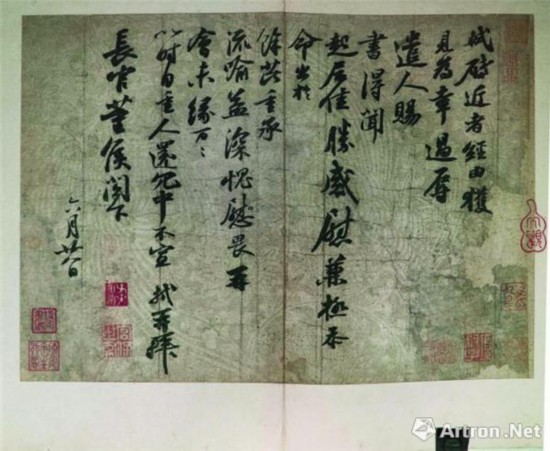 軾啟近者經由獲
見為幸過辱
遣人賜
書得聞
起居佳勝感慰兼極忝
命出於
餘芘重承
流喻益深愧畏再
會未緣万々
以時自重人還冗中不宣軾再拜
長官董侯閣下
六月廿八日
Artron.Net